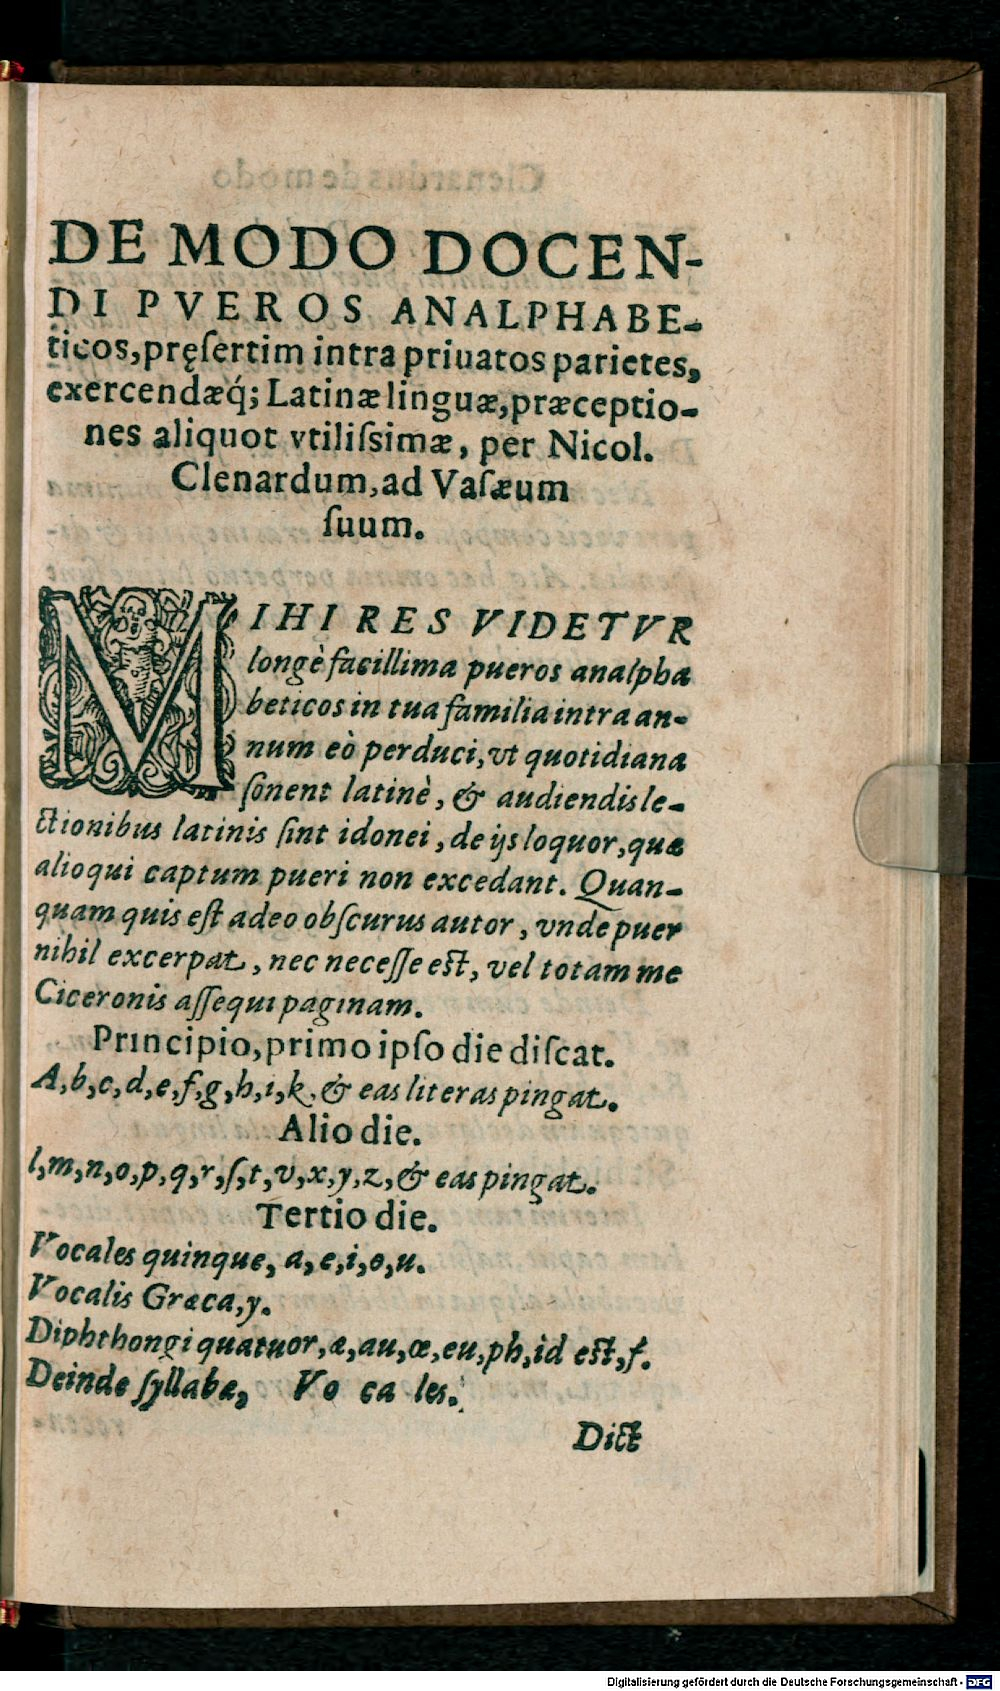 DE MODO DOCEN-
DI PVEROS ANALPHABE-
ticos, pręſertim intra priuatos parietes,
exercendæq́; Latinæ linguæ, præceptio-
nes aliquot vtiliſsimæ, per Nicol.
Clenardum, ad Vaſæum
ſuum.
MIHI RES VIDETVR
longè facillima pueros analpha
beticos in tua familia intra an-
num eò perduci, vt quotidiana
ſonent latinè, & audiendis le-
ctionibus latinis ſint idonei, de ijs loquor, quæ
alioqui captum pueri non excedant. Quan-
quam quis eſt adeo obſcurus autor, vnde puer
nihil excerpat, nec neceſſe eſt, vel totam me
Ciceronis aſſequi paginam.
Principio, primo ipſo die diſcat.
A, b, c, d, e, f, g, h, i, k, & eas literas pingat.
Alio die.
l, m, n, o, p, q, r, ſ, t, v, x, y, z, & eas pingat.
Tertio die.
Vocales quinque, a, e, i, o, u.
Vocalis Græca, y.
Diphthongi quatuor, æ, au, œ, eu, ph, id eſt, f.
Deinde ſyllabæ, Vo ca les.
Dict
Digitalisierung gefördert durch die Deutsche Forschungsgemeinschaft - DFG